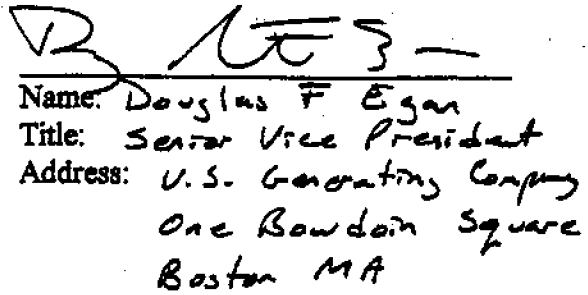 Name: Douglas F Egan
Title: Senior Vice President
Address: U.S. Generating Company
One Bowdoin Square
Boston MA